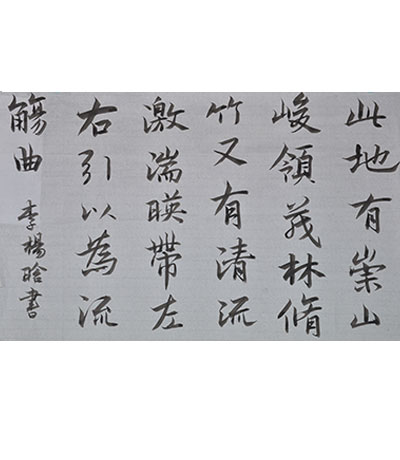 此地有崇山
峻領茂林脩
竹又有清流
激湍暎帶左
右引以為流
觴曲
李楊晗書